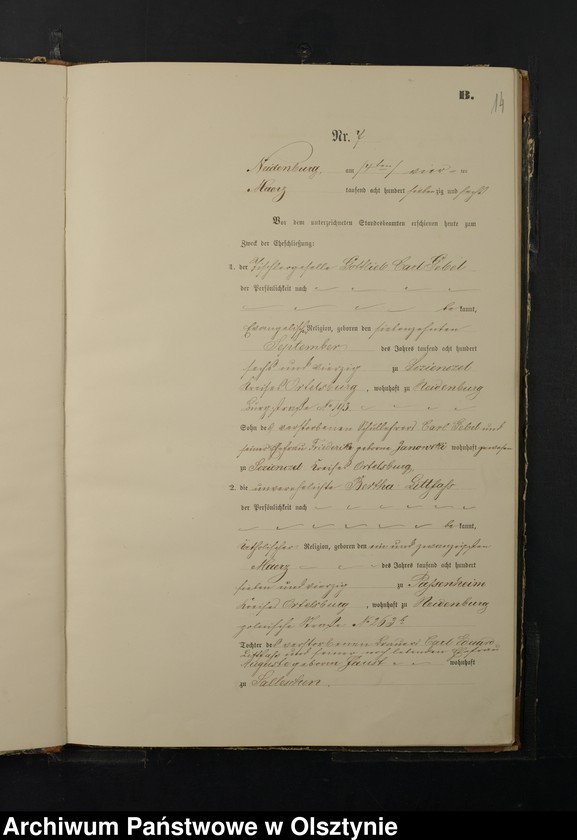 B.
14
Nr. 7
Neidenburg am
Maerz tausend acht hundert siebenzig und sechs
Vor dem unterzeichneten Standesbeamten erschienen heute zum
Zweck der Eheschließung:
1. der Tischlergeselle Gottlieb Carl
der Persönlichkeit nach
be kannt,
Evangelischer Religion, geboren den siebenzehnten
September des Jahres tausend acht hundert
sechs und vierzig zu
Kreises Ortelsburg, wohnhaft zu Neidenburg
Burgstraße No
Sohn des verstorbenen Schullehrers Carl und
seiner Ehefrau Friederike geborne wohnhaft gewesen
zu Kreises Ortelsburg
2. die unverehelichte Bertha Littfass
der Persönlichkeit nach
be kannt,
katholischer Religion, geboren den ein und zwanzigsten
Maerz des Jahres tausend acht hundert
sieben und vierzig zu Passenheim
Kreises Ortelsburg, wohnhaft zu Neidenburg
polnische Straße No
Tochter des verstorbenen Carl Eduard
Littfass und seiner noch lebenden Ehefrau
Auguste geborne wohnhaft
zu Salleschen.
Archiwum Państwowe w Olsztynie